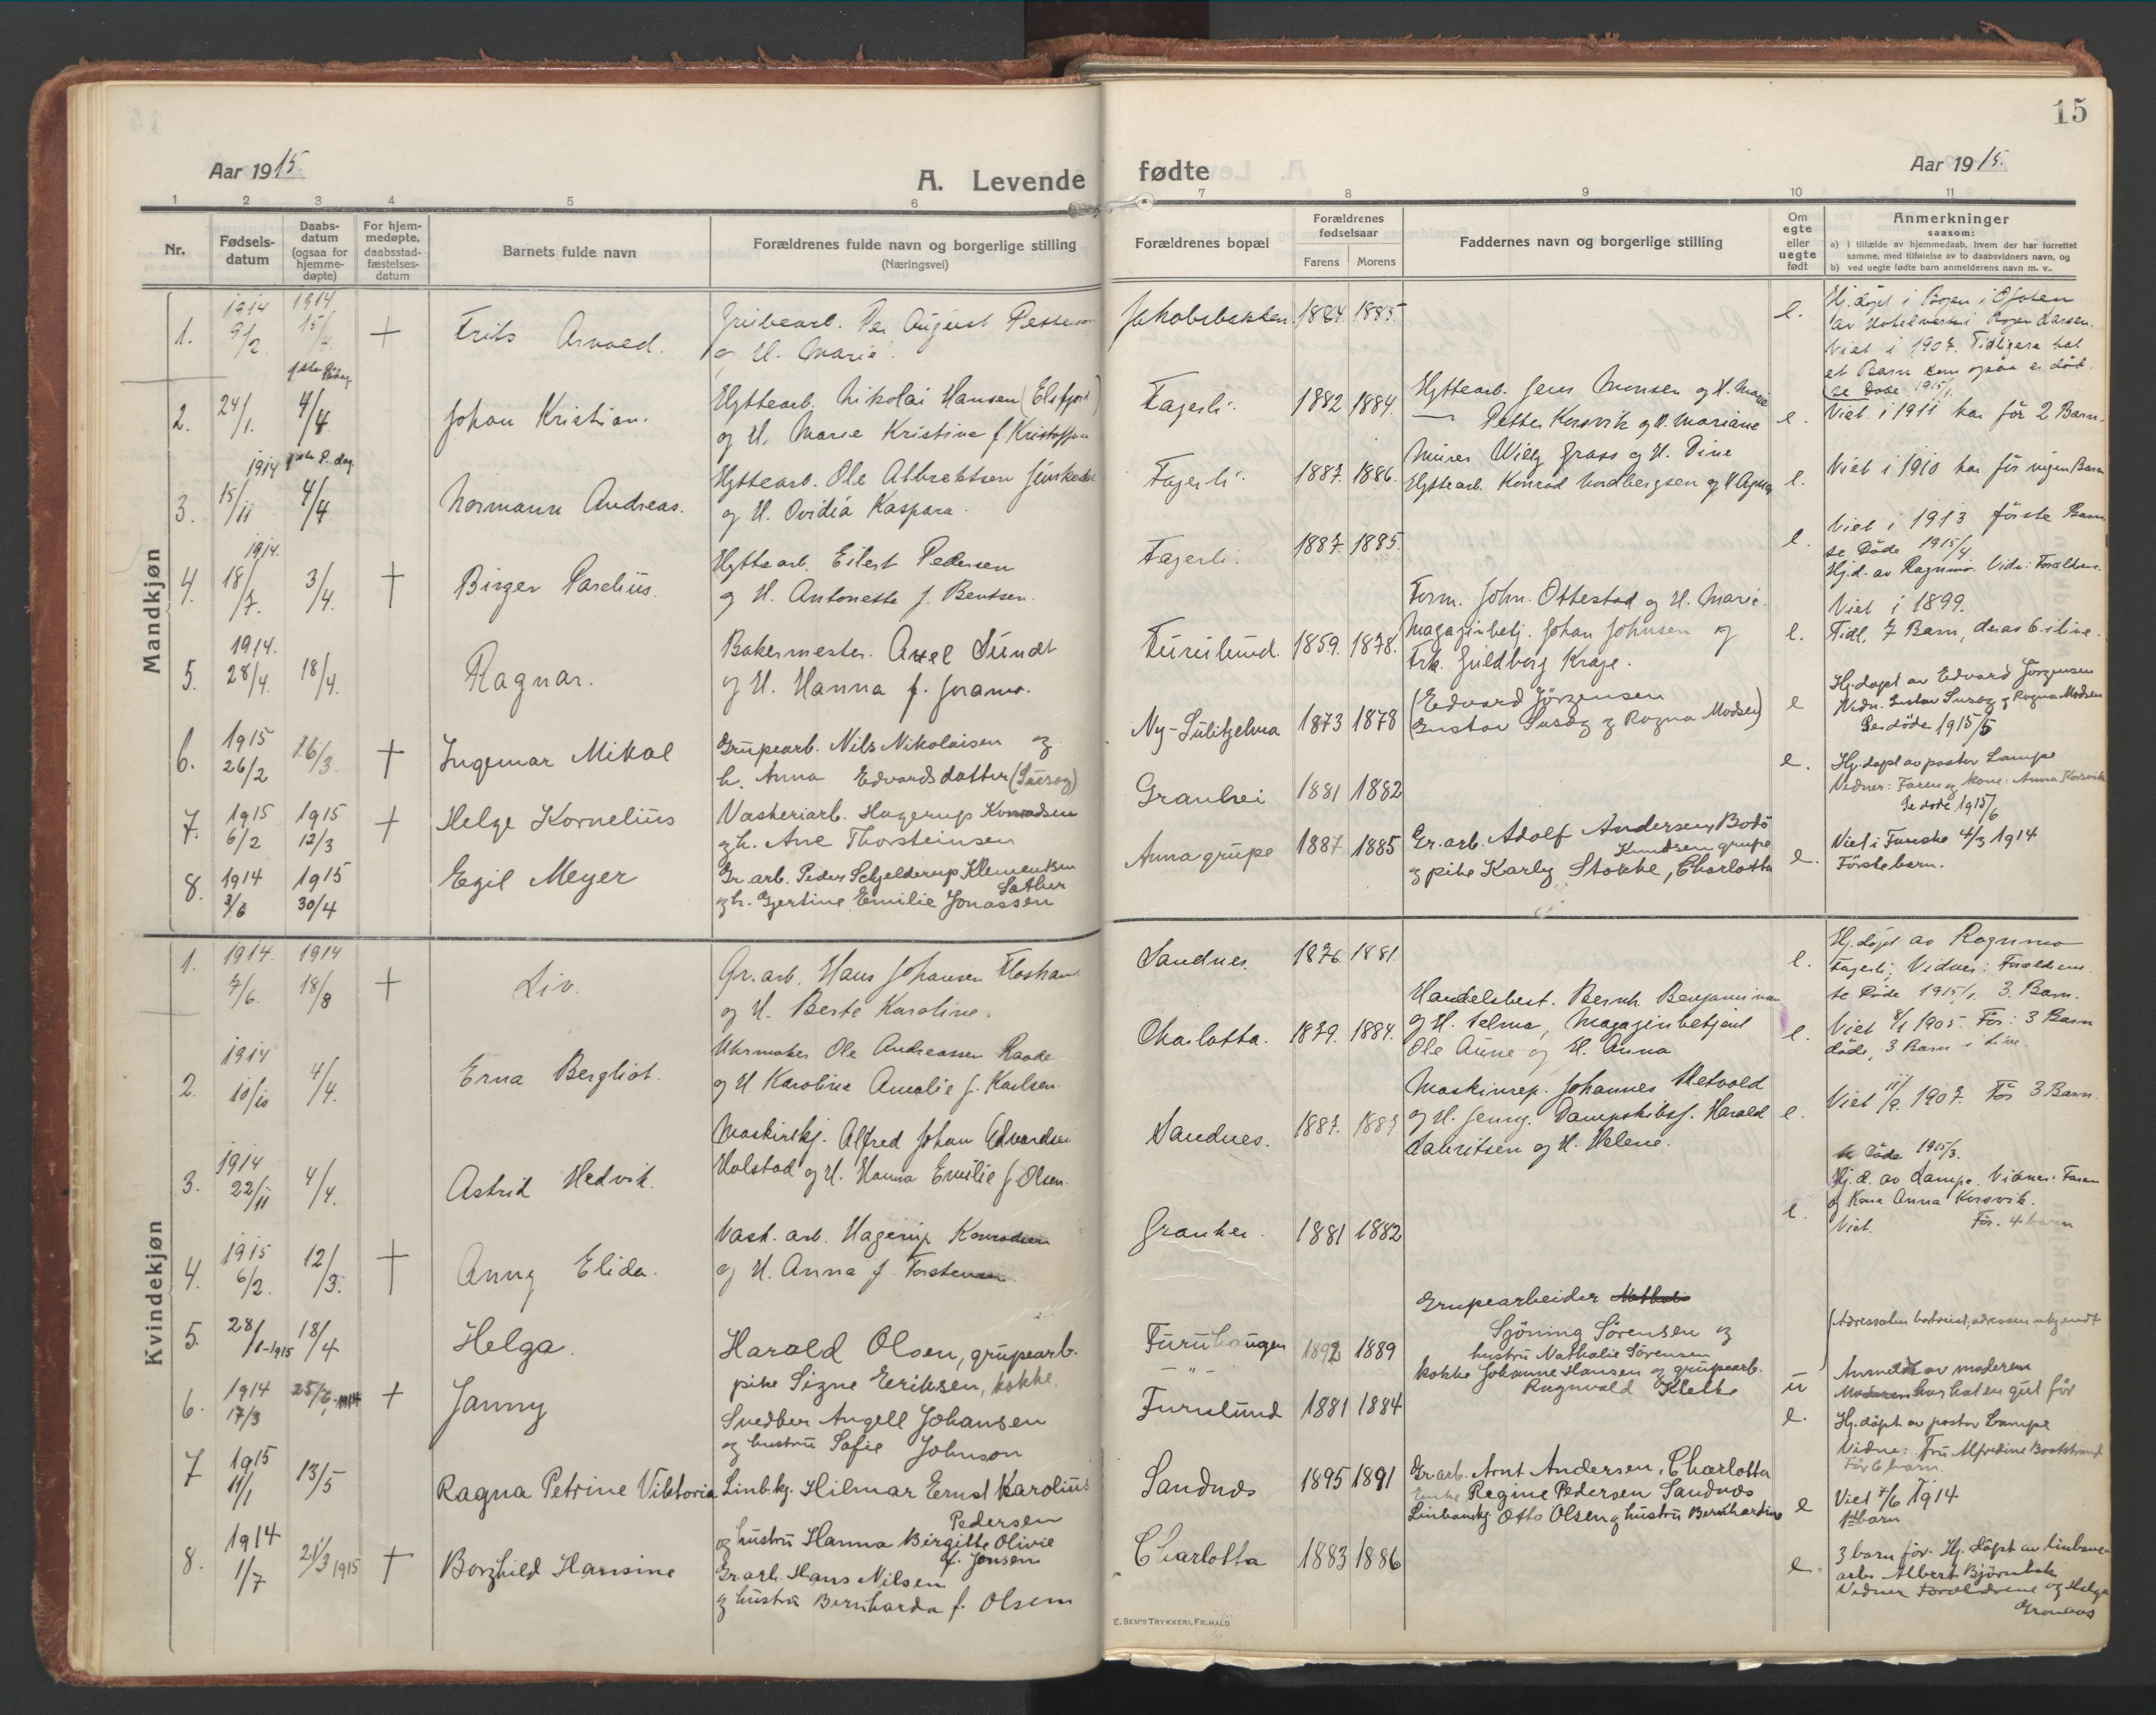 15
Aar 1915.
A. Levende
fødte
Aar 1915.
1 2 3 4 5 6
7 8 9 10 11
Nr.
Fødsels-
datum
Daabs-
datum
(ogsaa for
hjemme-
døpte)
For hjem-
medøpte,
daabsstad-
fæstelses-
datum
Barnets fulde navn
Forældrenes fulde navn og borgerlige stilling
(Næringsvei)
Forældrenes bopæl
Forældrenes
fødselsaar
Farens Morens
Faddernes navn og borgerlige stilling
Om
egte
eller
uegte
født
Anmerkninger
saasom:
a) i tilfælde av hjemmedaab, hvem der har forrettet
samme, med tilføielse av to daabsvidners navn, og
b) ved uegte fødte barn anmelderens navn m. v..
Mandkjøn
1. 1914 9/2. 1914 15/4. + Frits Arvoed.
Grubearb. Per August Petterson
og H. Marie.
Jakobsbakken 1884. 1885. e.
Hj. døpt i Bogen i Ofoten
av Larsen.
Viet i 1907. Tidligere hat
et Barn som ogsaa er død.
Se Døde 1915/1.
2. 24/1. 4/4 Johan Kristian.
Hyttearb. Nikolai Hansen (Elsfjord)
og H. Marie Kristine f. Kristoffen
Fagerli. 1882 1884.
Hyttearb. Jens Monsen og H. Marie
Petter Korsvik og H. Mariane e.
Viet i 1911 har før 2 Barn.
3. 1914 15/11 4/4 Normann Andreas.
Hyttearb. Ole Albrektsen
og H. Ovidia Kaspara.
Fagerli. 1887. 1886.
Murer Willy Grass og H. Dine
Hyttearb. Konrad Nordbergsen og H Agnes e.
Viet i 1910 har før ingen Barn
4. 1914. 18/7. 3/4. + Birger Parelius.
Hyttearb. Eilert Pedersen
og H. Antonette f. Bentsen.
Fagerli. 1887. 1885. e.
Viet i 1913 første Barn
se Døde 1915/4.
Hj.d. av Ragnmo. Vidn: Forældrene.
5. 1914. 28/4. 18/4. Ragnar.
Bakermester. Axel Sundt
og H. Hanna f. Joramo.
Furulund. 1859. 1878.
Form. John. Ottestad og H. Marie.
Magazinbetj. Johan Johnsen og
Frk. Guldborg Krage. e.
Viet i 1899.
Tidl. 7 Barn, deraf 6 i live.
6. 1915 26/2 26/3. + Ingemar Mikal
Grupearb. Nils Nikolaisen og
h. Anna Edvardsdatter
Ny-Sulitjelma 1873 1878
(Edvard Jörgensen
Gustav og Ragna Madsen) e
Hj.døpt av Edvard Jörgensen
Vidn. Gustav og Ragna Madsen
Se døde 1915/5
7. 1915 6/2 1915 12/3 + Helge Kornelius
Vaskeriarb. Hagerup Konradsen
og h. Ane Thorsteinsen
Granhei 1881 1882 e.
Hj.døpt av pastor Lampe
Vidner: Faren og kone: Anna Korsvik
Se døde 1915/6
8. 1914 3/6 1915 30/4 Egil Meyer
Gr. arb. Peder Schjelderup Klementsen
Sæther
og h. Gjertine Emilie Jonassen
Anna grupe 1887 1885
Gr. arb. Adolf Andersen, Bodö
Knudsen grupe
og pike Karly Stokke, Charlotta e.
Viet i Funske 4/3 1914
Förste barn.
Kvindekjøn
1. 1914. 7/6. 1914 18/8 + Liv.
Gr. arb. Hans Johansen
og H. Berte Karoline.
Sandnes. 1876. 1881. e.
Hj. døpt av Ragnmo
Fagerli, Vidner: Forældrene.
Se Døde 1915/1. 3. Barn.
2. 1914 10/10 4/4. Erna Bergliot.
Uhrmaker Ole Andreassen Raade
og H Karoline Amalie f. Karlsen.
Charlotta. 1879. 1884.
Handelsbest. Bernh. Benjaminsen
og H. Selma, Magazinbetjent
Ole Aune og H. Anna e.
Viet 8/1 1905. Før: 3 Barn
døde, 3 Barn i Live
3. 1914 22/11 4/4. Astrid Hedvik.
Maskinkj. Alfred Johan Edvardsen
Holstad og H. Hanna Emilie f. Olsen.
Sandnes. 1887. 1883.
Maskinrep. Johannes Hetvold
og H. Jenny. Dampskibsf. Harald
Lauritsen og H. Helene. e.
Viet 11/9. 1907. Før 3 Barn.
4. 1915 6/2. 12/3. + Anny Elida.
Vask. arb. Hagerup Konradsen
og H. Anna f. Torstensen
Granhei. 1881 1882 e.
Se Døde 1915/3.
Hj. d. av Lampe. Vidner: Faren
og Kone Anna Korsvik.
Viet. Før. 4 barn
5. 28/1-1915 18/4 Helga.
Harald Olsen, grupearb.
pike Signe Eriksen, kokke.
Furuhaugen 1892 1889
Grupearbeider
Sjöning Sörensen og
hustru Nathalie Sörensen
kokke Johanne Hansen og grupearb.
Ragnvald Klette u
Anmeldt av moderen
har hat en gut før
6. 1914 17/3 25/6 1914 + Janny
Snedker Angell Johansen
og hustru Sofie Johnson
Furulund 1881 1884 e.
Hj. døpt av pastor Lampe
Vidne: Fru Alfredine
Før 6 barn.
7 1915 11/1 13/5 Ragna Petrine Viktoria
Linb.kj. Hilmar Ernst Karolius
Pedersen
og hustru Hanna Birgitte Olivie
f. Jensen
Sandnes 1895 1891
Gr.arb. Arnt Andersen, Charlotta
Enke Regine Pedersen Sandnes
Linbanekj. Otto Olsen og hustru Bernhardine e
Viet 7/6 1914
1st barn
8. 1914 1/7 21/3 1915 + Borghild Hansine
Gr.arb. Hans Nilsen
og hustru Bernharda f. Olsen
Charlotta 1883 1886 e.
3 barn før. Hj. døpt av linbane-
arb. Albert Björnbak
Vidner Forældrene og Helga
E. SEM'S TRYKKERI, FR.HALD